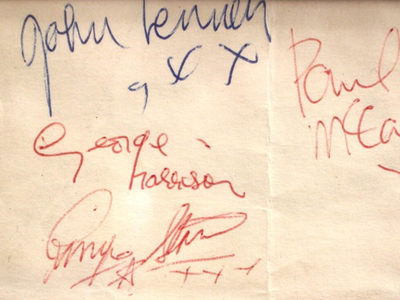 John Lennon
, x x
George
Harrison
Ringo Starr
x x x
Paul
McCa